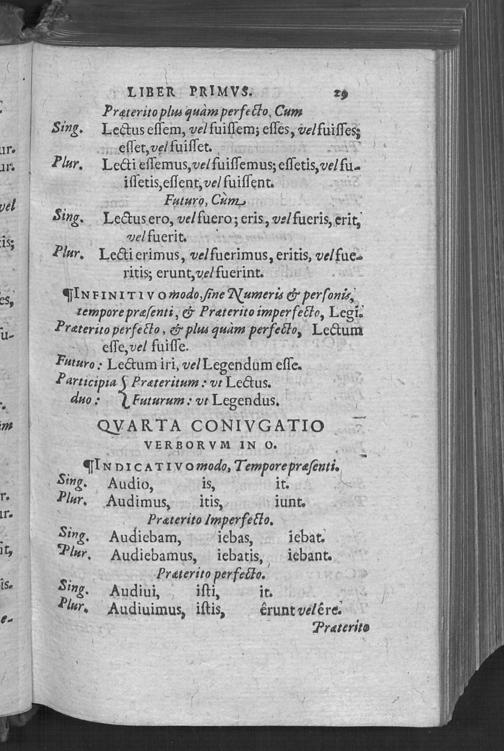 LIBER PRIMVS. 29
Præterito plus quàm perfecto, Cum
Sing. Lectus essem, vel fuissem; esses, vel fuisses;
esset, vel fuisset.
Plur. Lecti essemus, vel fuissemus; essetis, vel fu-
issetis, essent, vel fuissent.
Futuro, Cùm
Sing. Lectus ero, vel fuero; eris, vel fueris, erit,
vel fuerit.
Plur. Lecti erimus, vel fuerimus, eritis, vel fue-
ritis; erunt, vel fuerint.
¶INFINITIVO modo, sine Numeris & personis,
tempore præsenti, & Præterito imperfecto, Legi.
Præterito perfecto, & plus quàm perfecto, Lectum
esse, vel fuisse.
Futuro: Lectum iri, vel Legendum esse.
Participia { Præteritum: vt Lectus.
duo: { Futurum: vt Legendus.
QVARTA CONIVGATIO
VERBORVM IN O.
¶INDICATIVO modo, Tempore præsenti.
Sing. Audio, is, it.
Plur. Audimus, itis, iunt.
Præterito Imperfecto.
Sing. Audiebam, iebas, iebat.
Plur. Audiebamus, iebatis, iebant.
Præterito perfecto.
Sing. Audiui, isti, it.
Plur. Audiuimus, istis, êrunt vel êre.
Præterito